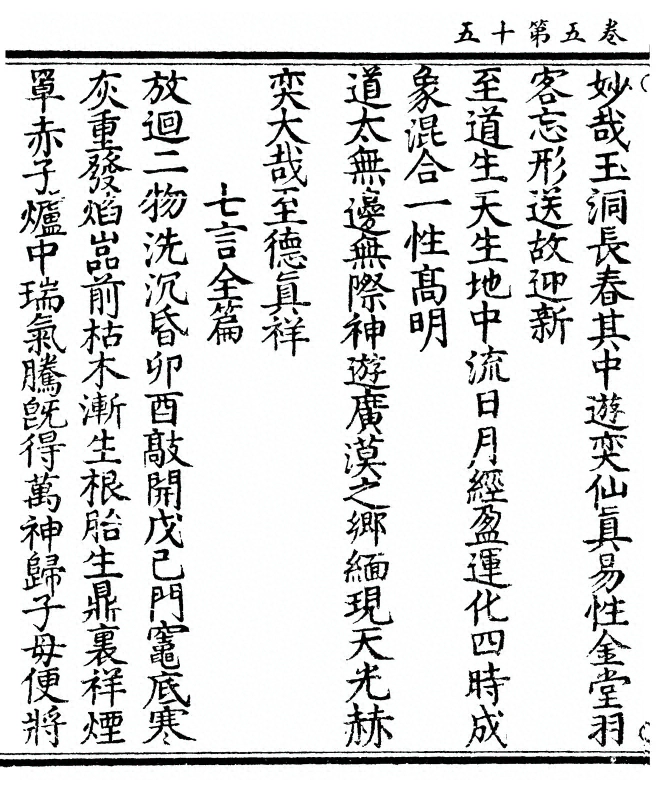 卷五第十五
妙哉玉洞長春其中遊奕仙眞易性金堂羽
客忘形送故迎新
至道生天生地中流日月經盈運化四時成
象混合一性高明
道太無邊無際神遊廣漠之鄉緬現天光赫
奕大哉至德眞祥
七言全篇
放迴二物洗沉昏卯酉敲開戊己門竈底寒
灰重發焰嵒前枯木漸生根胎生鼎裏祥煙
罩赤子爐中瑞氣騰旣得萬神歸子母便將